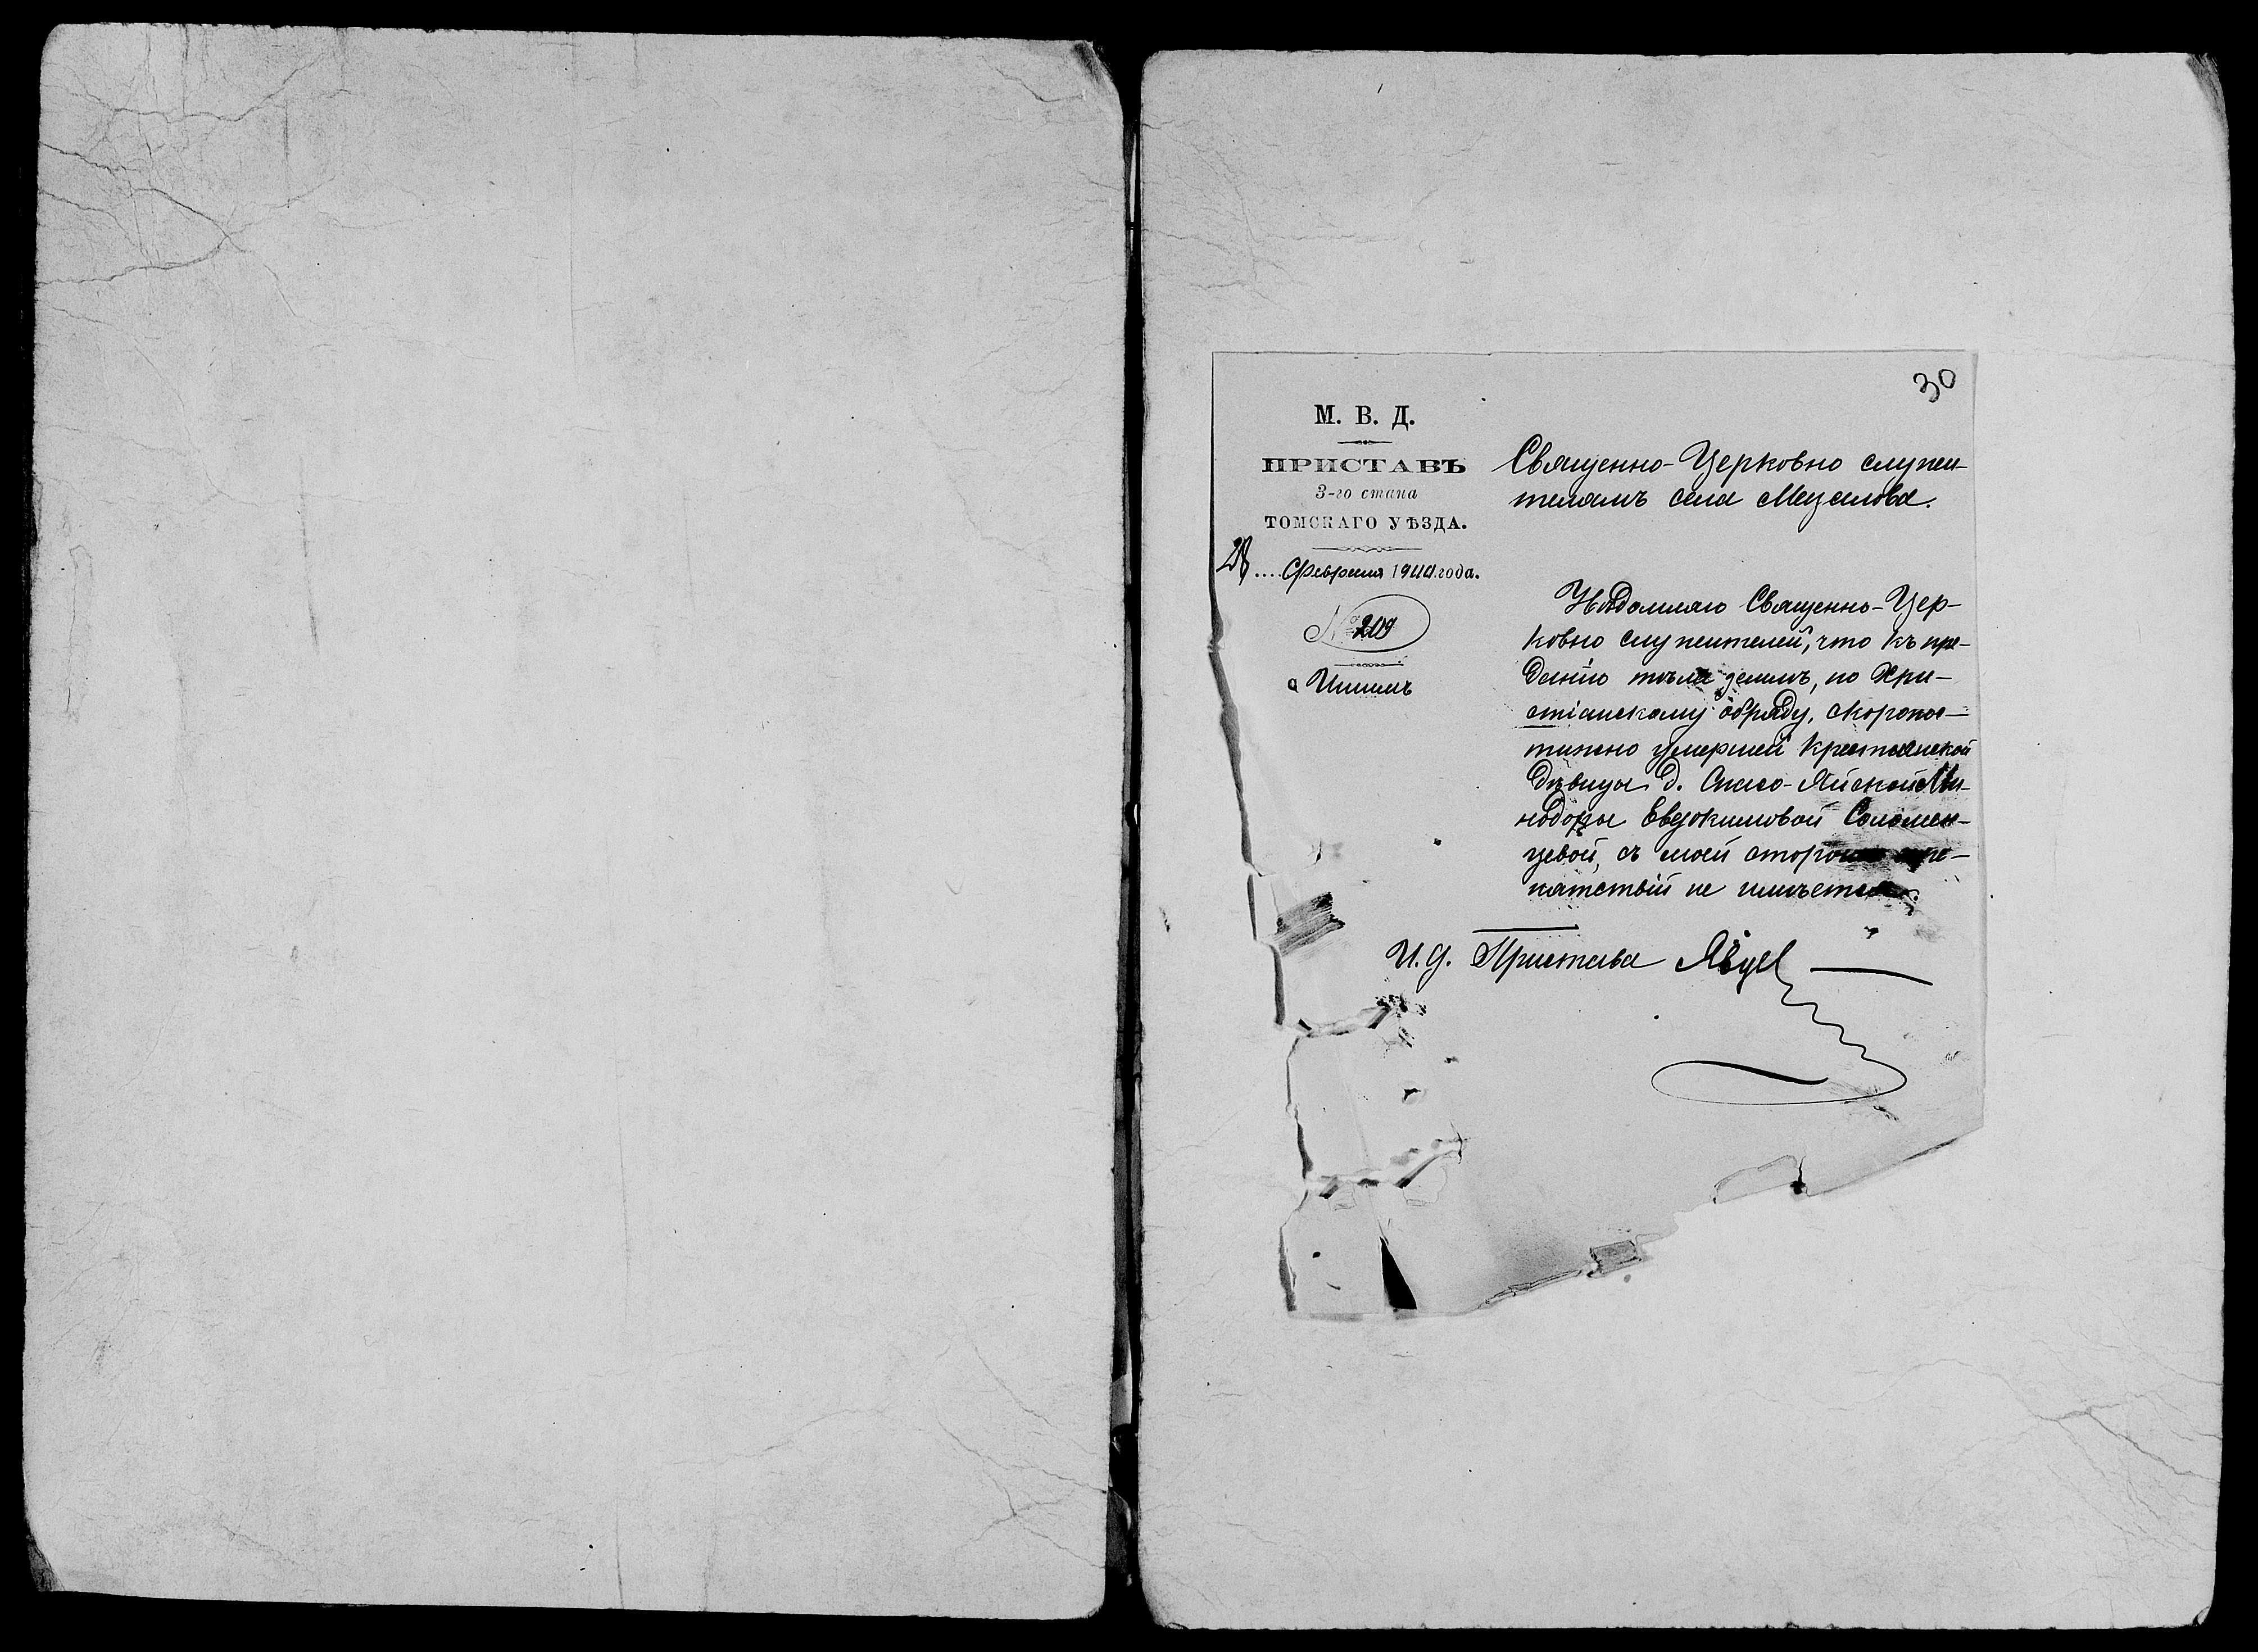 30
М. В. Д.
ПРИСТАВЪ
3-го стана
ТОМСКАГО УѢЗДА.
28 .... Февраля 1911 года.
№ 209
с Ишимъ
Священно-Церковно служи-
телямъ села Мазалова.
Увѣдомляю Священно-Цер-
ковно служителей, что къ пре-
данію тѣла землѣ, по Хри-
стіанскому обряду, скоропос-
тижно умершей крестьянской
дѣвицы д. Спасо-Яйской Ми-
нодоры Евдокимовой Соломен-
цевой, съ моей стороны пре-
пятствій не имѣется.
И. д. Пристава